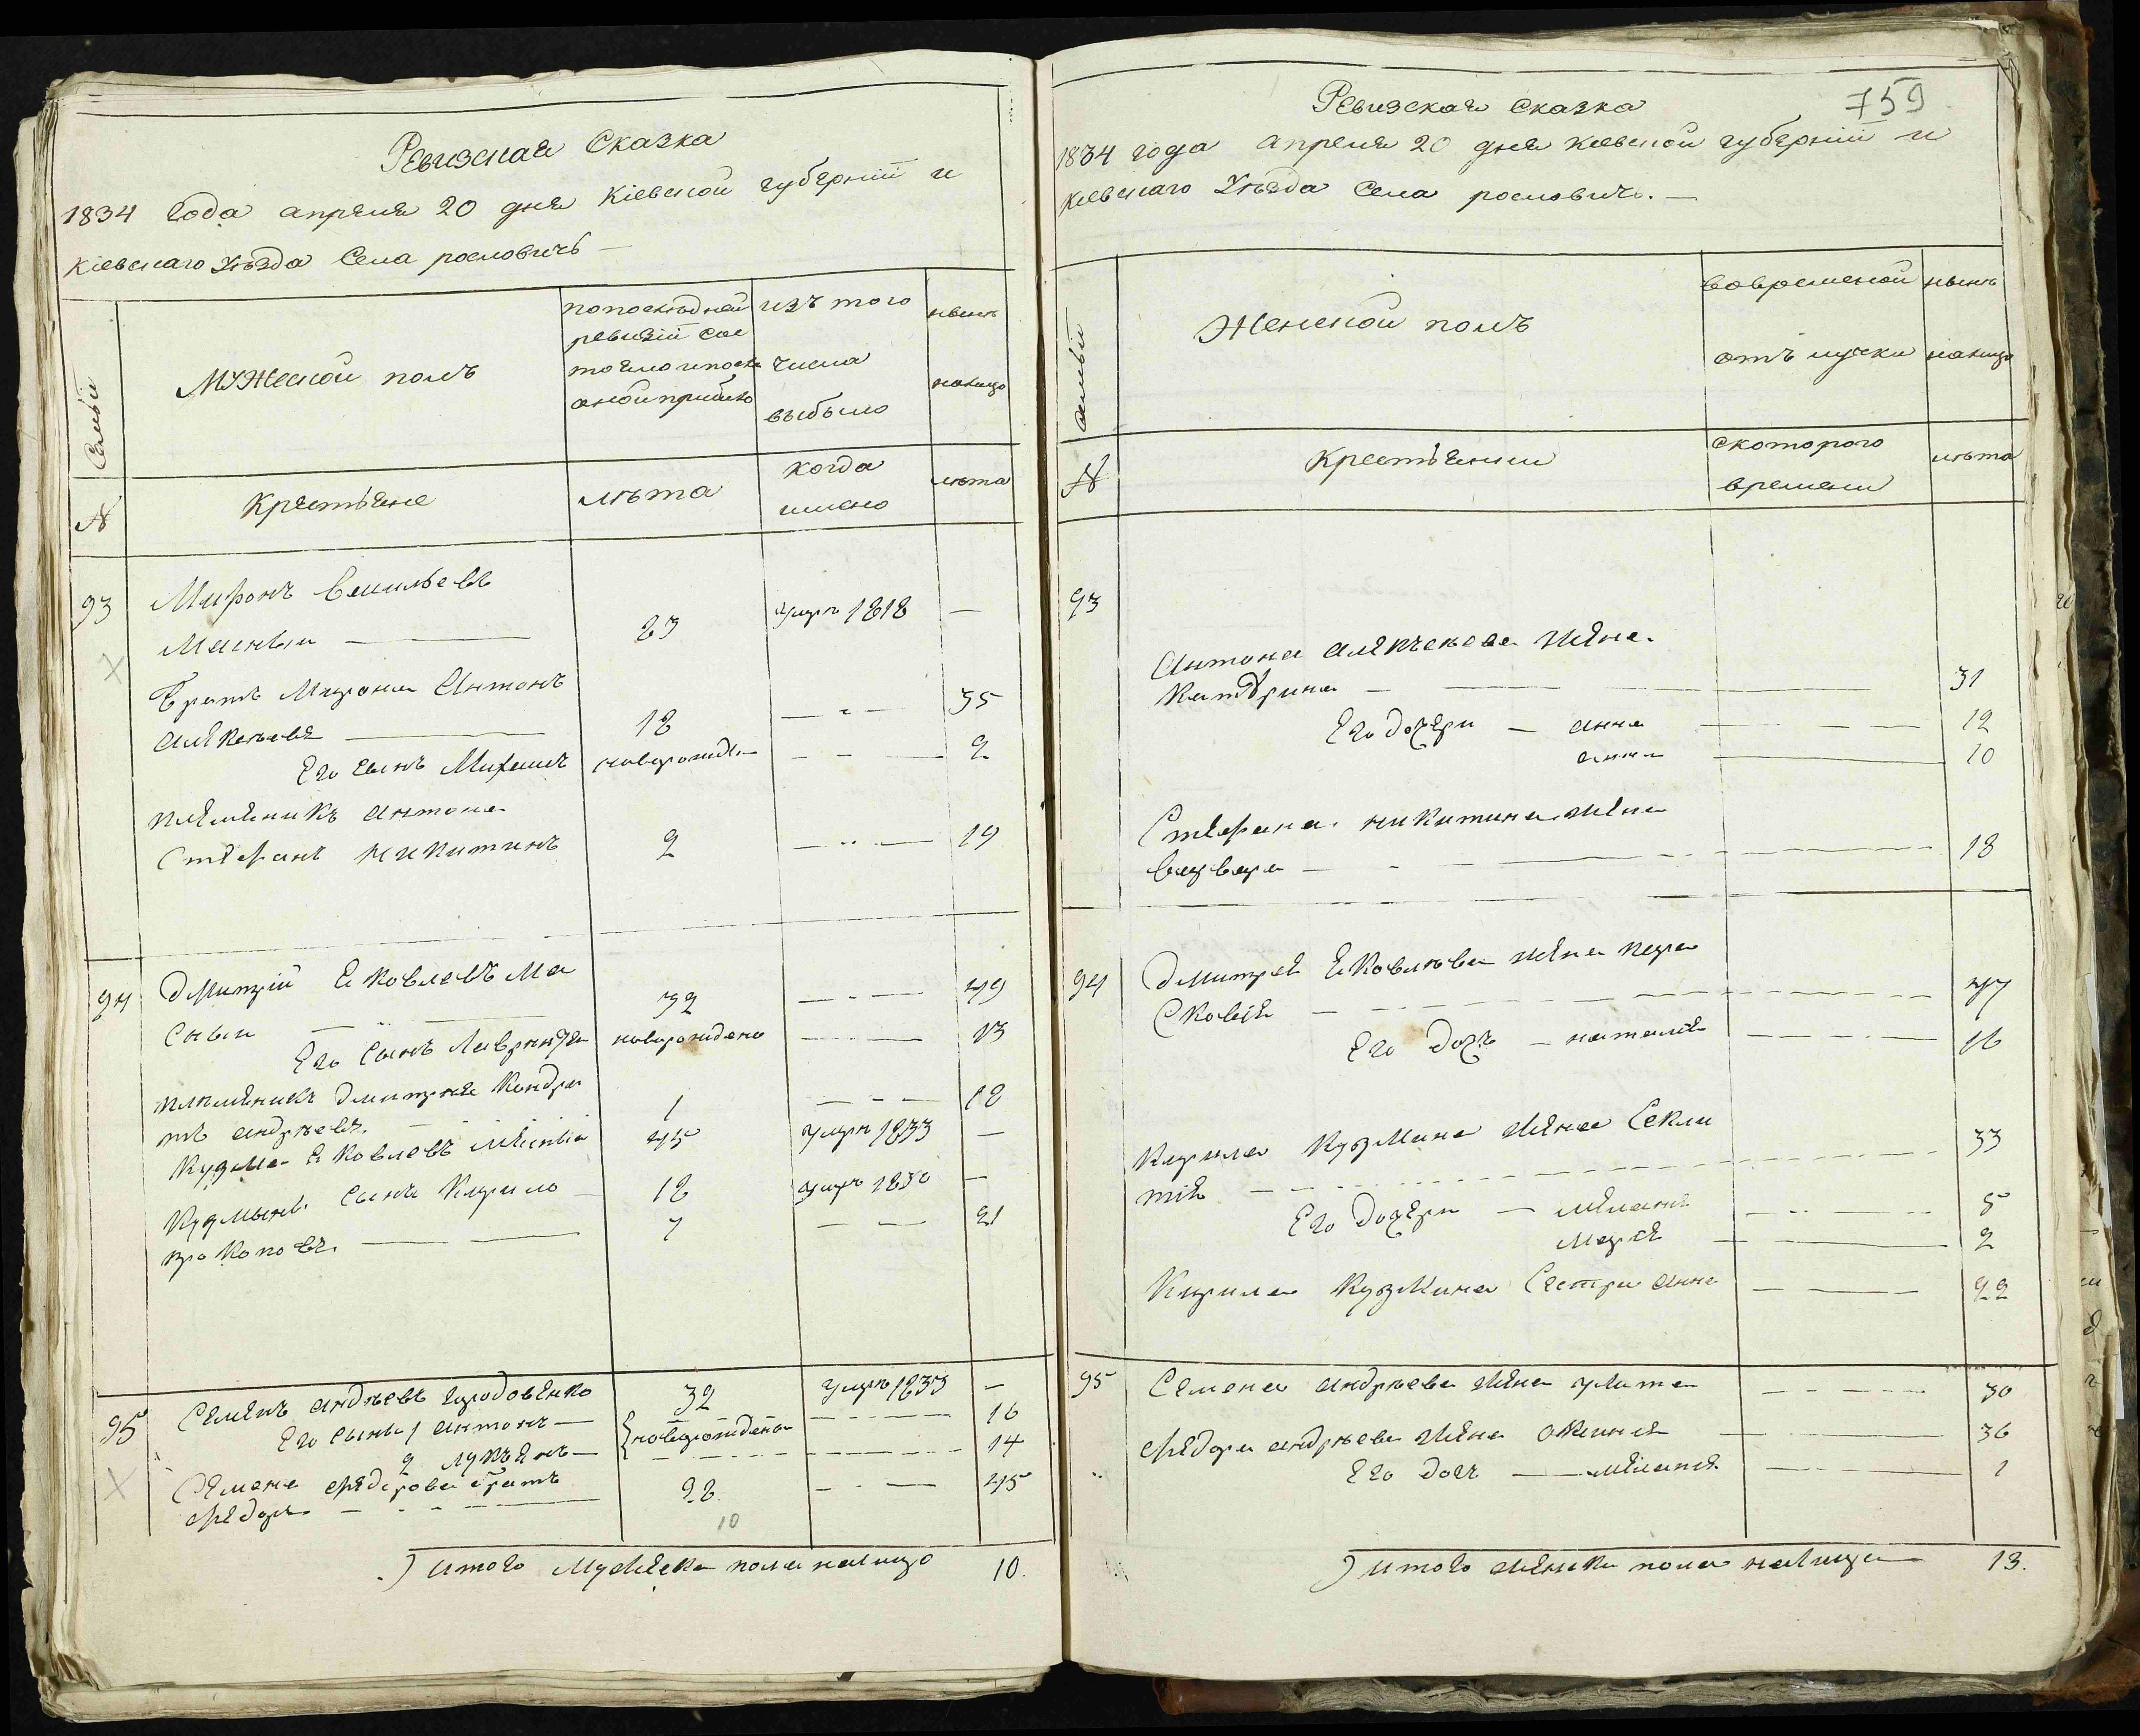 Ревизская Сказка
1834 года апреля 20 дня Кіевской губерніи и
Кіевскаго Уѣзда Села рословичь
Семьи
Мужеской полъ
по последней
ревизіи сос
тояло и после
оной прибыло
изъ того
числа
выбыло
нынѣ
налицо
№
Крестьяне
лѣта
когда
имено
лѣта
93 Миронъ Васильевъ
23 умръ 1818 —
братъ Мирона Антонъ
Алексѣевъ 18 — 35
Его сынъ Михаилъ новорожден — 2
племеникъ Антона
Стефанъ Никитинъ 2 — 19
94 Дмитрій Яковлевъ Ма
сный 32 — 49
Его Сынъ Лаврентій новорождено — 13
племеникъ Дмитрия Кондра
тъ андрѣевъ 1 — 18
Кузма Яковлевъ 45 умръ 1833 —
Кузмынъ Сынъ Кирило 18 умръ 1830 —
прокоповъ 7 — 21
95 Семенъ андрѣевъ 32 умръ 1833 —
Его Сыны 1 антонъ — новорождены — 16
2 лукъянъ — 14
Семена братъ
Федоръ 28 — 45
10
Итого Мужеска пола налицо 10.
759
Ревизская Сказка
1834 года апреля 20 дня Кіевской губерніи и
Кіевскаго Уѣзда Села рословичь. —
семьи
Женской полъ
во временной
отлучки
нынѣ
налицо
№
Крестьянки
с которого
времени
лѣта
93
Антона алексѣева жена
Катерина — 31
Его дочери — анна — 12
анна — 10
Стефана никитина жена
варвара — 18
94 Дмитрея Яковлева жена пара
сковія — 47
Его дочь — наталія — 16
Кирила Кузмина жена Секли
тія — 33
Его дочери — мелания — 5
Марія — 2
Кирила Кузмина Сестра анна — 22
95 Семена андрѣева жена улита — 30
Федора андрѣева жена — 36
Его дочь — мелания — 1
Итого женска пола налицо 13.